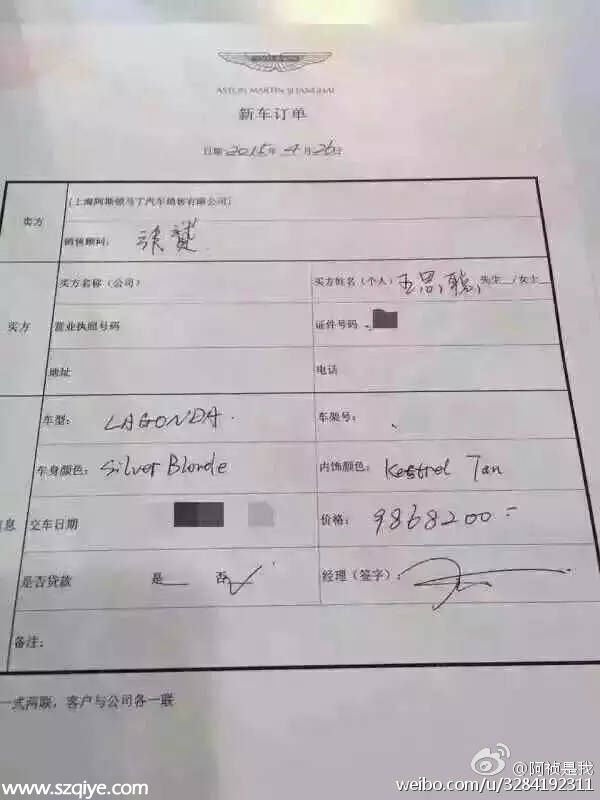 ASTON MARTIN
ASTON MARTIN SHANGHAI
新车订单
日期 2015年 4月 26日
卖方
(上海阿斯顿马丁汽车销售有限公司)
销售顾问: 张赟
买方
买方名称(公司)
买方姓名(个人) 王思聪 先生__/女士__
营业执照号码
证件号码
地址
电话
信息
车型: LAGONDA
车架号:
车身颜色: Silver Blonde
内饰颜色: Kestrel Tan
交车日期
价格: 9868200
是否贷款 是__ 否✓
经理(签字):
备注:
一式两联，客户与公司各一联
www.szqiye.com
@阿祯是我
weibo.com/u/3284192311